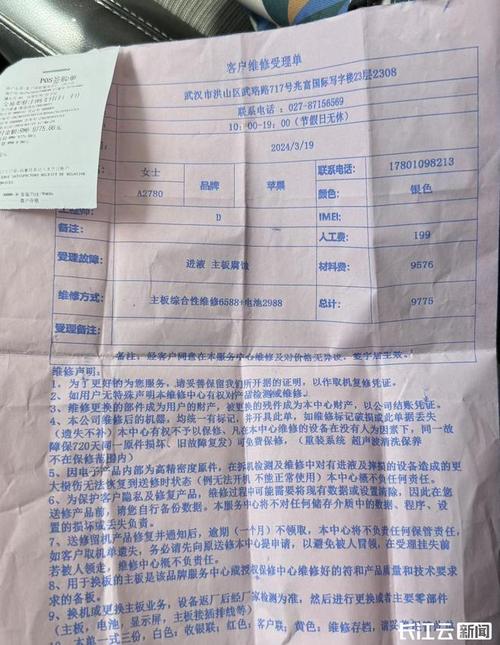 POS签购单
客户维修受理单
武汉市洪山区武珞路717号兆富国际写字楼23层2308
联系电话：027-87156569
10：00-19：00（节假日无休）
2024/3/19
女士
联系电话：
17801098213
A2780
品牌
苹果
颜色：
银色
工程师：
D
IMEI：
备注：
人工费：
199
受理故障：
进液 主板腐蚀
材料费：
9576
维修方式：
主板综合性维修6588+电池2988
总计：
9775
受理备注：
备注：经客户同意在本服务中心维修及对价格无异议，签字后生效。
维修声明：
1、为了更好的为您服务，请妥善保留我们所开据的证明，以作取机复修凭证。
2、如用户无特殊声明本维修中心有权对产品检测或维修。
3、维修更换的部件成为用户的财产，被更换的残件成为本中心财产，以公司结账凭证。
4、本公司维修后的机器，均统一有标记，并开具此单，如维修标记破损或此单据丢失
（遗失不补）本中心有权不予以保修，凡在本中心维修的设备在没有人为因素下，同一故
障保720天（同一原件损坏、旧故障复发）可免费保修，（原装系统 超声波清洗保养
不在保修范围内）
5、因电子产品内部为高精密度原件，在拆机检测及维修中对有进液及摔损的设备造成的更
大损伤无法恢复到送修时状态（例无法开机 不能正常使用）本中心概不负任何责任。
6、为保护客户隐私及修复产品，维修过程中可能需要将现有数据或设置清除，因此在您
送修产品前，请您自行备份数据。本服务中心将不对任何储存介质中的数据、程序、设
置的损坏或丢失负责。
7、送修留机产品修复并通知后，逾期（一个月）不领取，本中心将不负任何保管责任，
如客户取机单遗失，务必请先向原送修本中心提申请，以避免被人冒领，在受理挂失前
若被人领走，维修中心概不负责任。
8、用于换板的主板是该品牌服务中心或授权保修中心维修好的符和产品质量和技术要求
求的备板。
9、换机或更换主板业务，设备返厂后经厂家检测为准，然后进行更换或者主要零部件
（主板，电池，显示屏，主板接插排线等）
10、本单一式三份，白色：收银联；红色：客户联；黄色：维修存档，请妥善
长江云 新闻